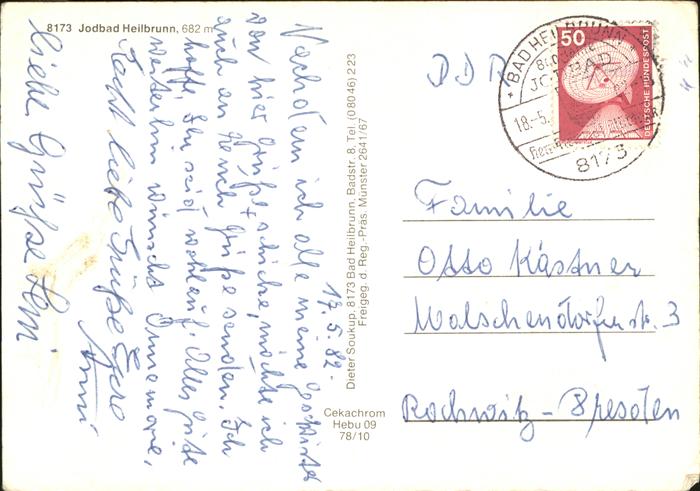 8173 Jodbad Heilbrunn, 682 m
17.5.82.
Nachdem ich alle meine
von hier Grüße schicke, möchte ich
auch an Euch Grüße senden. Ich
hoffe, Ihr seid wohlauf. Alles Gute
weiterhin wünscht Annemarie,
Recht liebe Grüße Eure
Anni
Liebe Grüße
Dieter Soukup, 8173 Bad Heilbrunn, Badstr. 8, Tel. (08046) 223
Freigeg. d. Reg.-Präs. Münster 2641/67
Cekachrom
Hebu 09
78/10
DDR
BAD HEILBRUNN
18.-5.
8173
50
DEUTSCHE BUNDESPOST
Familie
Otto Kästner
Malschendorferstr. 3
Rochwitz - Dresden